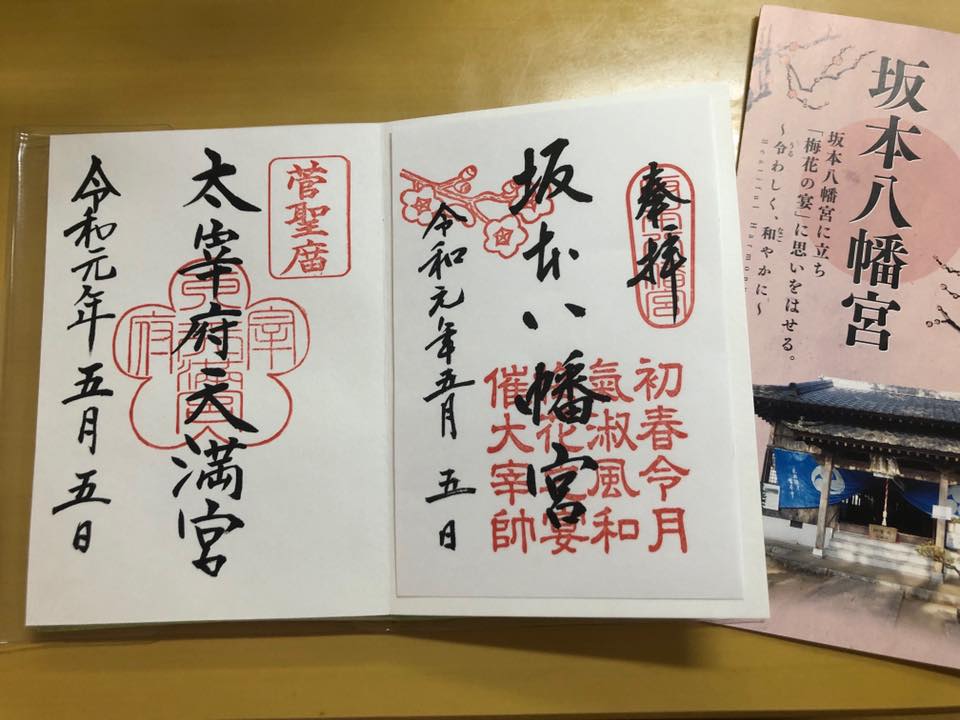 坂本八幡宮
坂本八幡宮に立ち
「梅花の宴」に思いをはせる。
～令わしく、和やかに～
うる
なご
Beautiful Harmony
奉拝
坂本八幡宮
令和元年五月五日
初春令月
氣淑風和
梅花之宴
催大宰帥
菅聖廟
太宰府天満宮
令和元年五月五日